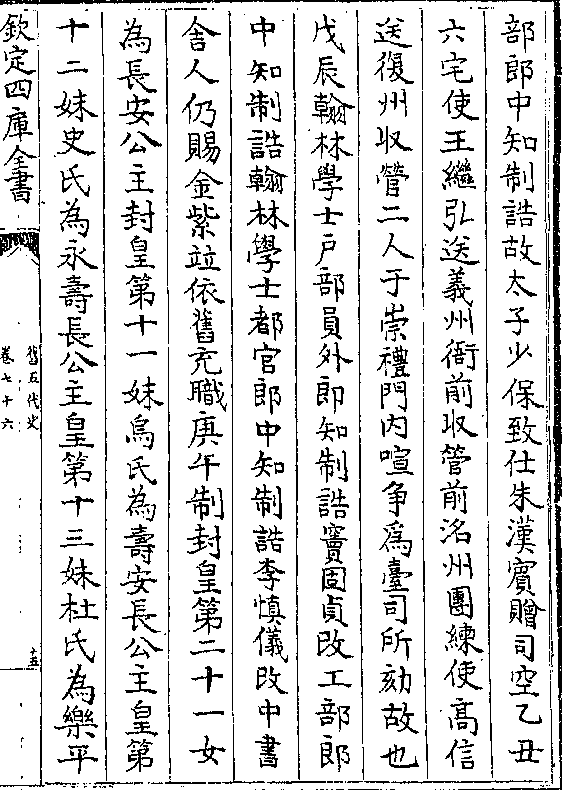 部郎中知制誥故太子少保致仕朱漢賓贈司空乙丑
六宅使王繼弘送義州衙前収管前洺州團練使髙信
送復州収管二人于崇禮門内喧争爲臺司所劾故也
戊辰翰林學士戸部員外郎知制誥竇固貞改工部郎
中知制誥翰林學士都官郎中知制誥李慎儀改中書
舍人仍賜金紫並依舊充職庚午制封皇第二十一女
為長安公主封皇第十一妹烏氏為壽安長公主皇第
十二妹史氏為永壽長公主皇第十三妹杜氏為樂平
欽定四庫全書
舊五代史
卷七十六
十五